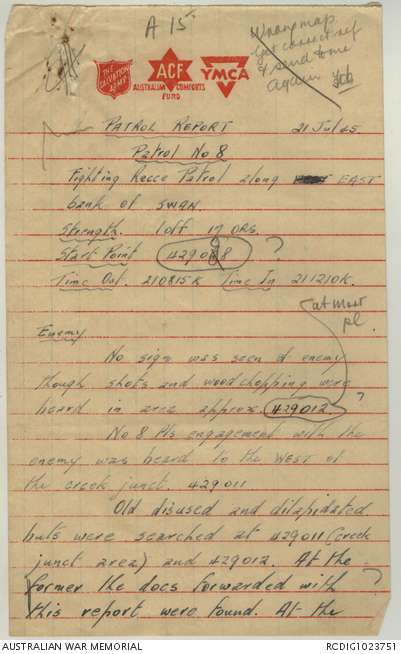 A 15
Wrong map
Get correct ref
& send to me
again
THE SALVATION ARMY
ACF
AUSTRALIAN COMFORTS
FUND
YMCA
PATROL REPORT 21 Jul 45
Patrol No 8
Fighting Recce Patrol along EAST
bank of SWAN.
Strength. 1 off 17 ORs.
Start Point 429008 ?
Time Out. 210815K Time In 211210K.
at most
pl
Enemy
No sign was seen of enemy
though shots and woodchopping were
heard in area approx. 429012. ?
No 8 Pls engagement with the
enemy was heard to the WEST of
the creek junct. 429011
Old disused and dilapidated
huts were searched at 429011 (creek
junct area) and 429012. At the
former the docs forwarded with ?
this report were found. At the
AUSTRALIAN WAR MEMORIAL
RCDIG1023751